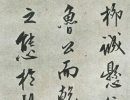 柳誠懸
魯公而
之態於